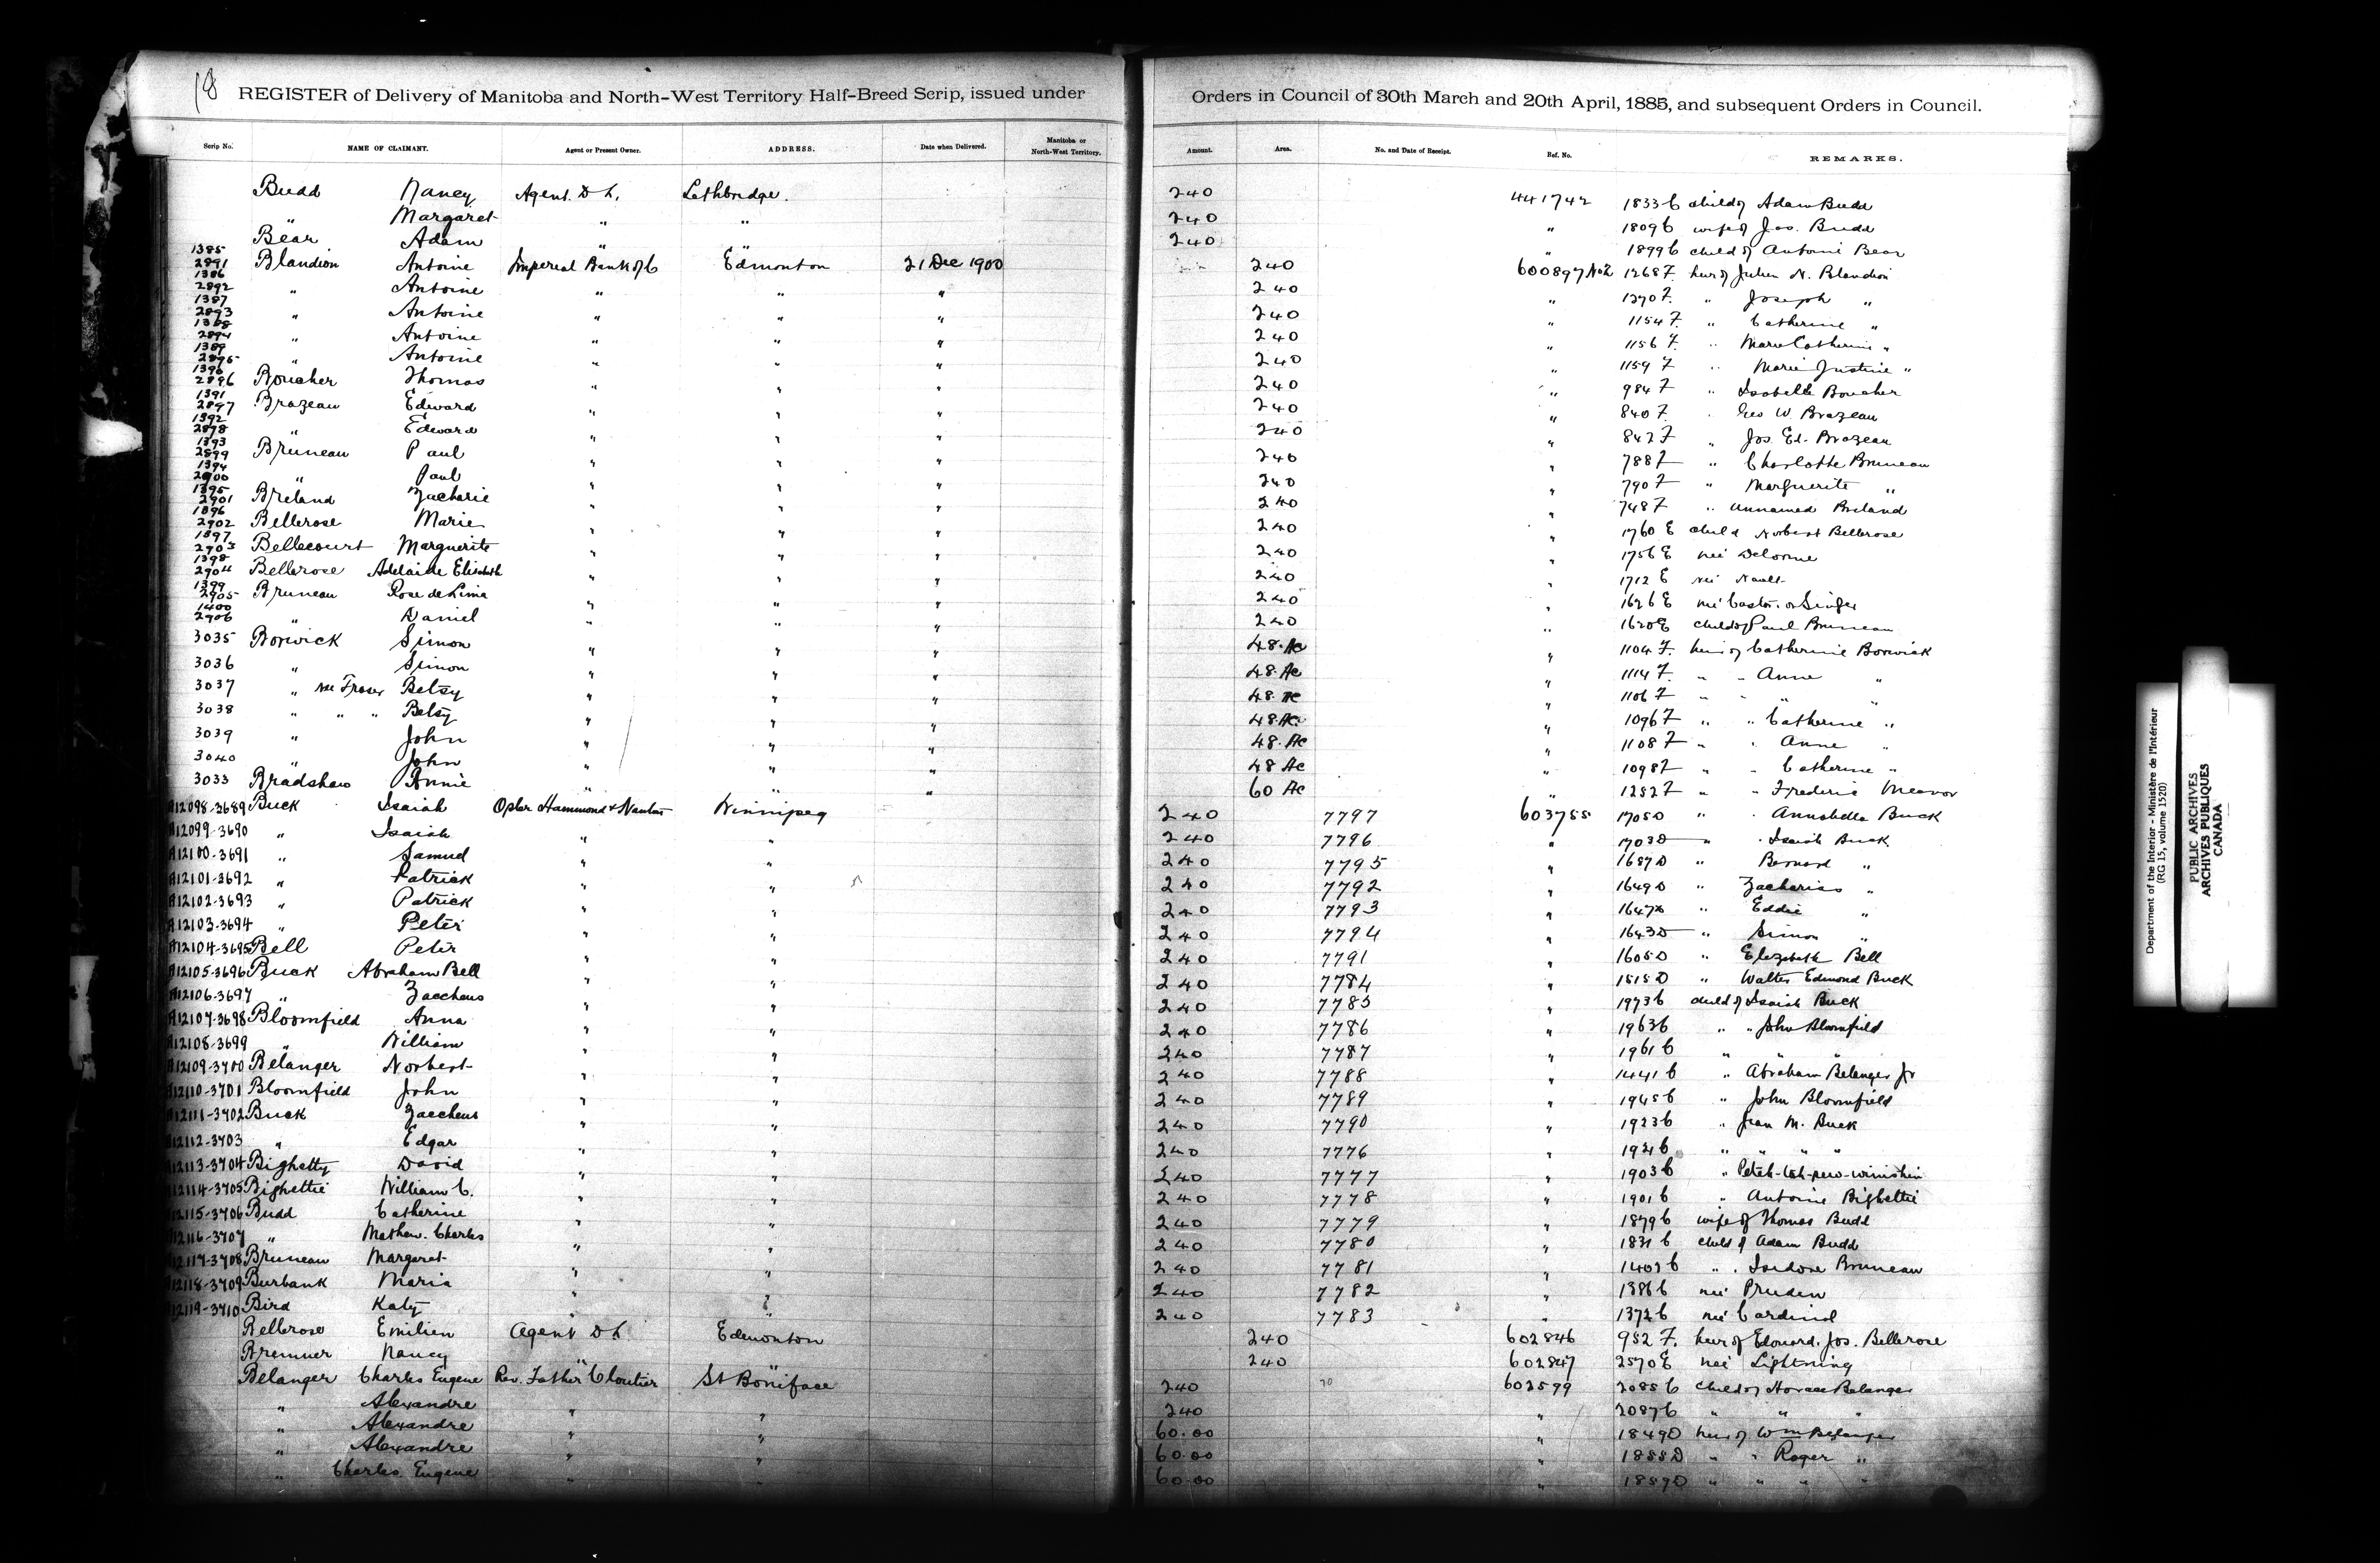 18 REGISTER of Delivery of Manitoba and North-West Territory Half-Breed Scrip, issued under Orders in Council of 30th March and 20th April, 1885, and subsequent Orders in Council.
Scrip No. NAME OF CLAIMANT. Agent or Present Owner. ADDRESS. Date when Delivered. Manitoba or North-West Territory. Amount. Area. No. and Date of Receipt. Ref. No. REMARKS.
Budd Nancy Agent D L, Lethbridge. 240 441742 1833 C child of Adam Budd
" Margaret " " 240 " 1809 C wife of Jos. Budd
Bear Adam " " 240 " 1899 C child of Antoine Bear
1385 2891 Blandion Antoine Imperial Bank of C Edmonton 21 Dec 1900 240 600897 No2 1268 F. heir of Julien N. Blandion
1386 2892 " Antoine " " " 240 " 1270 F. " Joseph "
1387 2893 " Antoine " " " 240 " 1154 F. " Catherine "
1388 2894 " Antoine " " " 240 " 1156 F. " Marie Catherine "
1389 2895 " Antoine " " " 240 " 1159 F " Marie Justine "
1390 2896 Boucher Thomas " " " 240 " 984 F " Isabelle Boucher
1391 2897 Brazeau Edward " " " 240 " 840 F. " Geo W. Brazeau
1392 2898 " Edward " " " 240 " 842 F " Jos. Ed. Brazeau
1393 2899 Bruneau Paul " " " 240 " 788 F " Charlotte Bruneau
1394 2900 " Paul " " " 240 " 790 F " Marguerite "
1395 2901 Breland Zacharie " " " 240 " 748 F " unnamed Breland
1396 2902 Bellerose Marie " " " 240 " 1760 E child Norbert Bellerose
1397 2903 Bellecourt Marguerite " " " 240 " 1756 E neé Delorme
1398 2904 Bellerose Adelaide Elisabeth " " " 240 " 1712 E neé Nault
1399 2905 Bruneau Rose de Lima " " " 240 " 1626 E neé Castor or Singer
1400 2906 " Daniel " " " 240 " 1620 E child of Paul Bruneau
3035 Borwick Simon " " " 48. Ac " 1104 F. heir of Catherine Borwick
3036 " Simon " " " 48. Ac " 1114 F. " " Anne "
3037 " née Fraser Betsy " " " 48. Ac " 1106 F " " " "
3038 " " " Betsy " " " 48. Ac. " 1096 F " " Catherine "
3039 " John " " " 48. Ac " 1108 F " " Anne "
3040 " John " " " 48 Ac " 1098 F " " Catherine "
3033 Bradshaw Annie " " " 60 Ac 1282 F " " Frederic Meavor
A12098-3689 Buck Isaiah Osler Hammond & Nanton Winnipeg 240 7797 603755 1705 D " " Annabella Buck
A12099-3690 " Isaiah " " 240 7796 " 1703 D " " Isaiah Buck
A12100-3691 " Samuel " " 240 7795 " 1687 D " Bernard "
A12101-3692 " Patrick " " 240 7792 " 1649 D " Zacharias "
A12102-3693 " Patrick " " 240 7793 " 1647 D " Eddie "
A12103-3694 " Peter " " 240 7794 " 1643 D " Simon "
A12104-3695 Bell Peter " " 240 7791 " 1605 D " Elizabeth Bell
A12105-3696 Buck Abraham Bell " " 240 7784 " 1515 D " Walter Edmond Buck
A12106-3697 " Zaccheus " " 240 7785 " 1973 C child of Isaiah Buck
A12107-3698 Bloomfield Anna " " 240 7786 " 1963 C " " John Bloomfield
A12108-3699 " William " " 240 7787 " 1961 C " " "
A12109-3700 Belanger Norbert " " 240 7788 " 1441 C " Abraham Belanger Jr
A12110-3701 Bloomfield John " " 240 7789 " 1945 C " John Bloomfield
A12111-3702 Buck Zaccheus " " 240 7790 " 1923 C " Jean M. Buck
A12112-3703 " Edgar " " 240 7776 " 1921 C " " " "
A12113-3704 Bighetty David " " 240 7777 " 1903 C "
A12114-3705 Bighettie William C. " " 240 7778 " 1901 C " Antoine Bighettie
A12115-3706 Budd Catherine " " 240 7779 " 1879 C wife of Thomas Budd
A12116-3707 " Mathew. Charles " " 240 7780 " 1831 C child of Adam Budd
A12117-3708 Bruneau Margaret " " 240 7781 " 1402 C " " Isidore Bruneau
A12118-3709 Burbank Maria " " 240 7782 " 1386 C neé Pruden
A12119-3710 Bird Katy " " 240 7783 " 1372 C neé Cardinal
Bellerose Emilien Agent D L Edmonton 240 602846 952 F. heir of Edouard. Jos. Bellerose
Bremner Nancy " " 240 602847 2570 E neé Lightning
Belanger Charles Eugene Rev. Father Cloutier St Boniface 240 602599 2085 C child of Horace Belanger
" Alexandre " " 240 " 2087 C " " "
" Alexandre " " 60.00 " 1849 D heir of Wm Belanger
" Alexandre " " 60.00 " 1855 D " " Roger "
" Charles Eugene " " 60.00 " 1859 D " " " "
Department of the Interior - Ministère de l'Intérieur
(RG 15, volume 1520)
PUBLIC ARCHIVES
ARCHIVES PUBLIQUES
CANADA